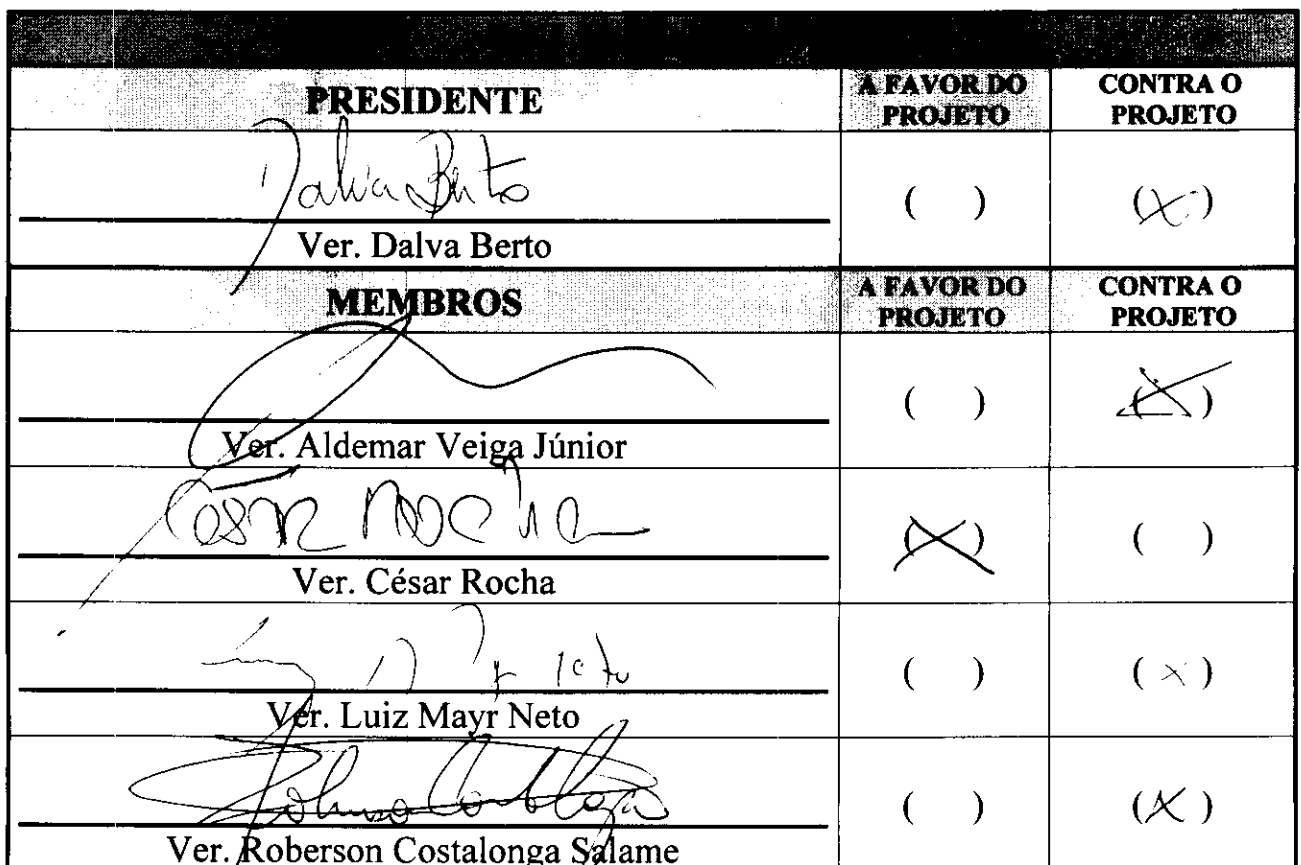 PRESIDENTE
A FAVOR DO PROJETO
CONTRA O PROJETO
Dalva Berto
( ) (X)
Ver. Dalva Berto
MEMBROS
A FAVOR DO PROJETO
CONTRA O PROJETO
( ) (X)
Ver. Aldemar Veiga Júnior
César Rocha
(X) ( )
Ver. César Rocha
( ) (X)
Ver. Luiz Mayr Neto
( ) (X)
Ver. Roberson Costalonga Salame